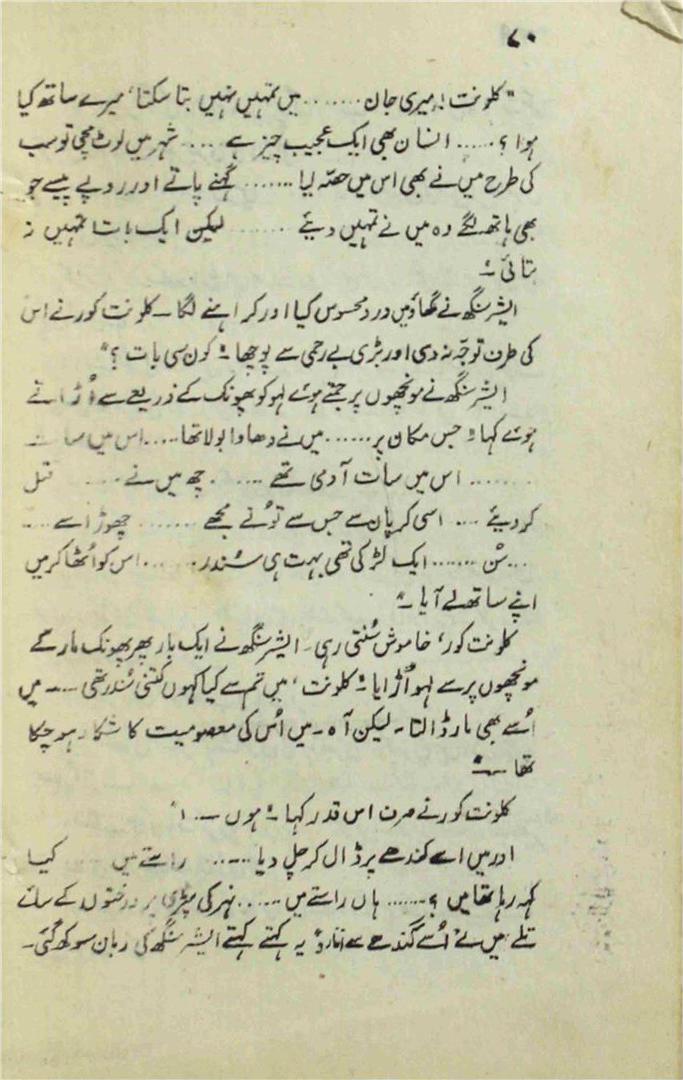 ۷۰
"کلونت! میری جان ........ میں تمہیں نہیں بتا سکتا، میرے ساتھ کیا
ہوا؟ ..... انسان بھی ایک عجیب چیز ہے .... شہر میں لوٹ مچی تو سب
کی طرح میں نے بھی اس میں حصہ لیا ....... گہنے پاتے اور روپے پیسے جو
بھی ہاتھ لگے وہ میں نے تمہیں دیئے ....... لیکن ایک بات تمہیں نہ
بتائی۔"
ایشر سنگھ نے گھاؤ میں درد محسوس کیا اور کراہنے لگا۔ کلونت کور نے اس
کی طرف توجہ نہ دی اور بڑی بے رحمی سے پوچھا۔ "کون سی بات؟"
ایشر سنگھ نے مونچھوں پر جمتے ہوئے لہو کو پھونک کے ذریعے سے اُڑاتے
ہوئے کہا۔ "جس مکان پر ...... میں نے دھاوا بولا تھا ..... اس میں سات
........ اس میں سات آدمی تھے ...... چھ میں نے .... قتل
کر دیئے .... اسی کرپان سے جس سے تُو نے مجھے ....... چھوڑ اسے ....
... سُن ....... ایک لڑکی تھی بہت ہی سُندر ...... اس کو اُٹھا کر میں
اپنے ساتھ لے آیا۔"
کلونت کور، خاموش سُنتی رہی۔ ایشر سنگھ نے ایک بار پھر پھونک مار کے
مونچھوں پر سے لہو اُڑایا۔ "کلونت، میں تم سے کیا کہوں کتنی سُندر تھی .... میں
اُسے بھی مار ڈالتا۔ لیکن آہ۔ میں اُس کی معصومیت کا شکار ہو چکا
تھا ــــ"
کلونت کور نے صرف اس قدر کہا۔ "ہوں ــــ!"
اور میں اسے کندھے پر ڈال کر چل دیا ..... راستے میں .... کیا
کہہ رہا تھا میں؟ ....... ہاں راستے میں ...... نہر کی پٹڑی پر درختوں کے سائے
تلے میں نے اُسے کندھے سے اتار دیا" یہ کہتے کہتے ایشر سنگھ کی زبان سوکھ گئی۔